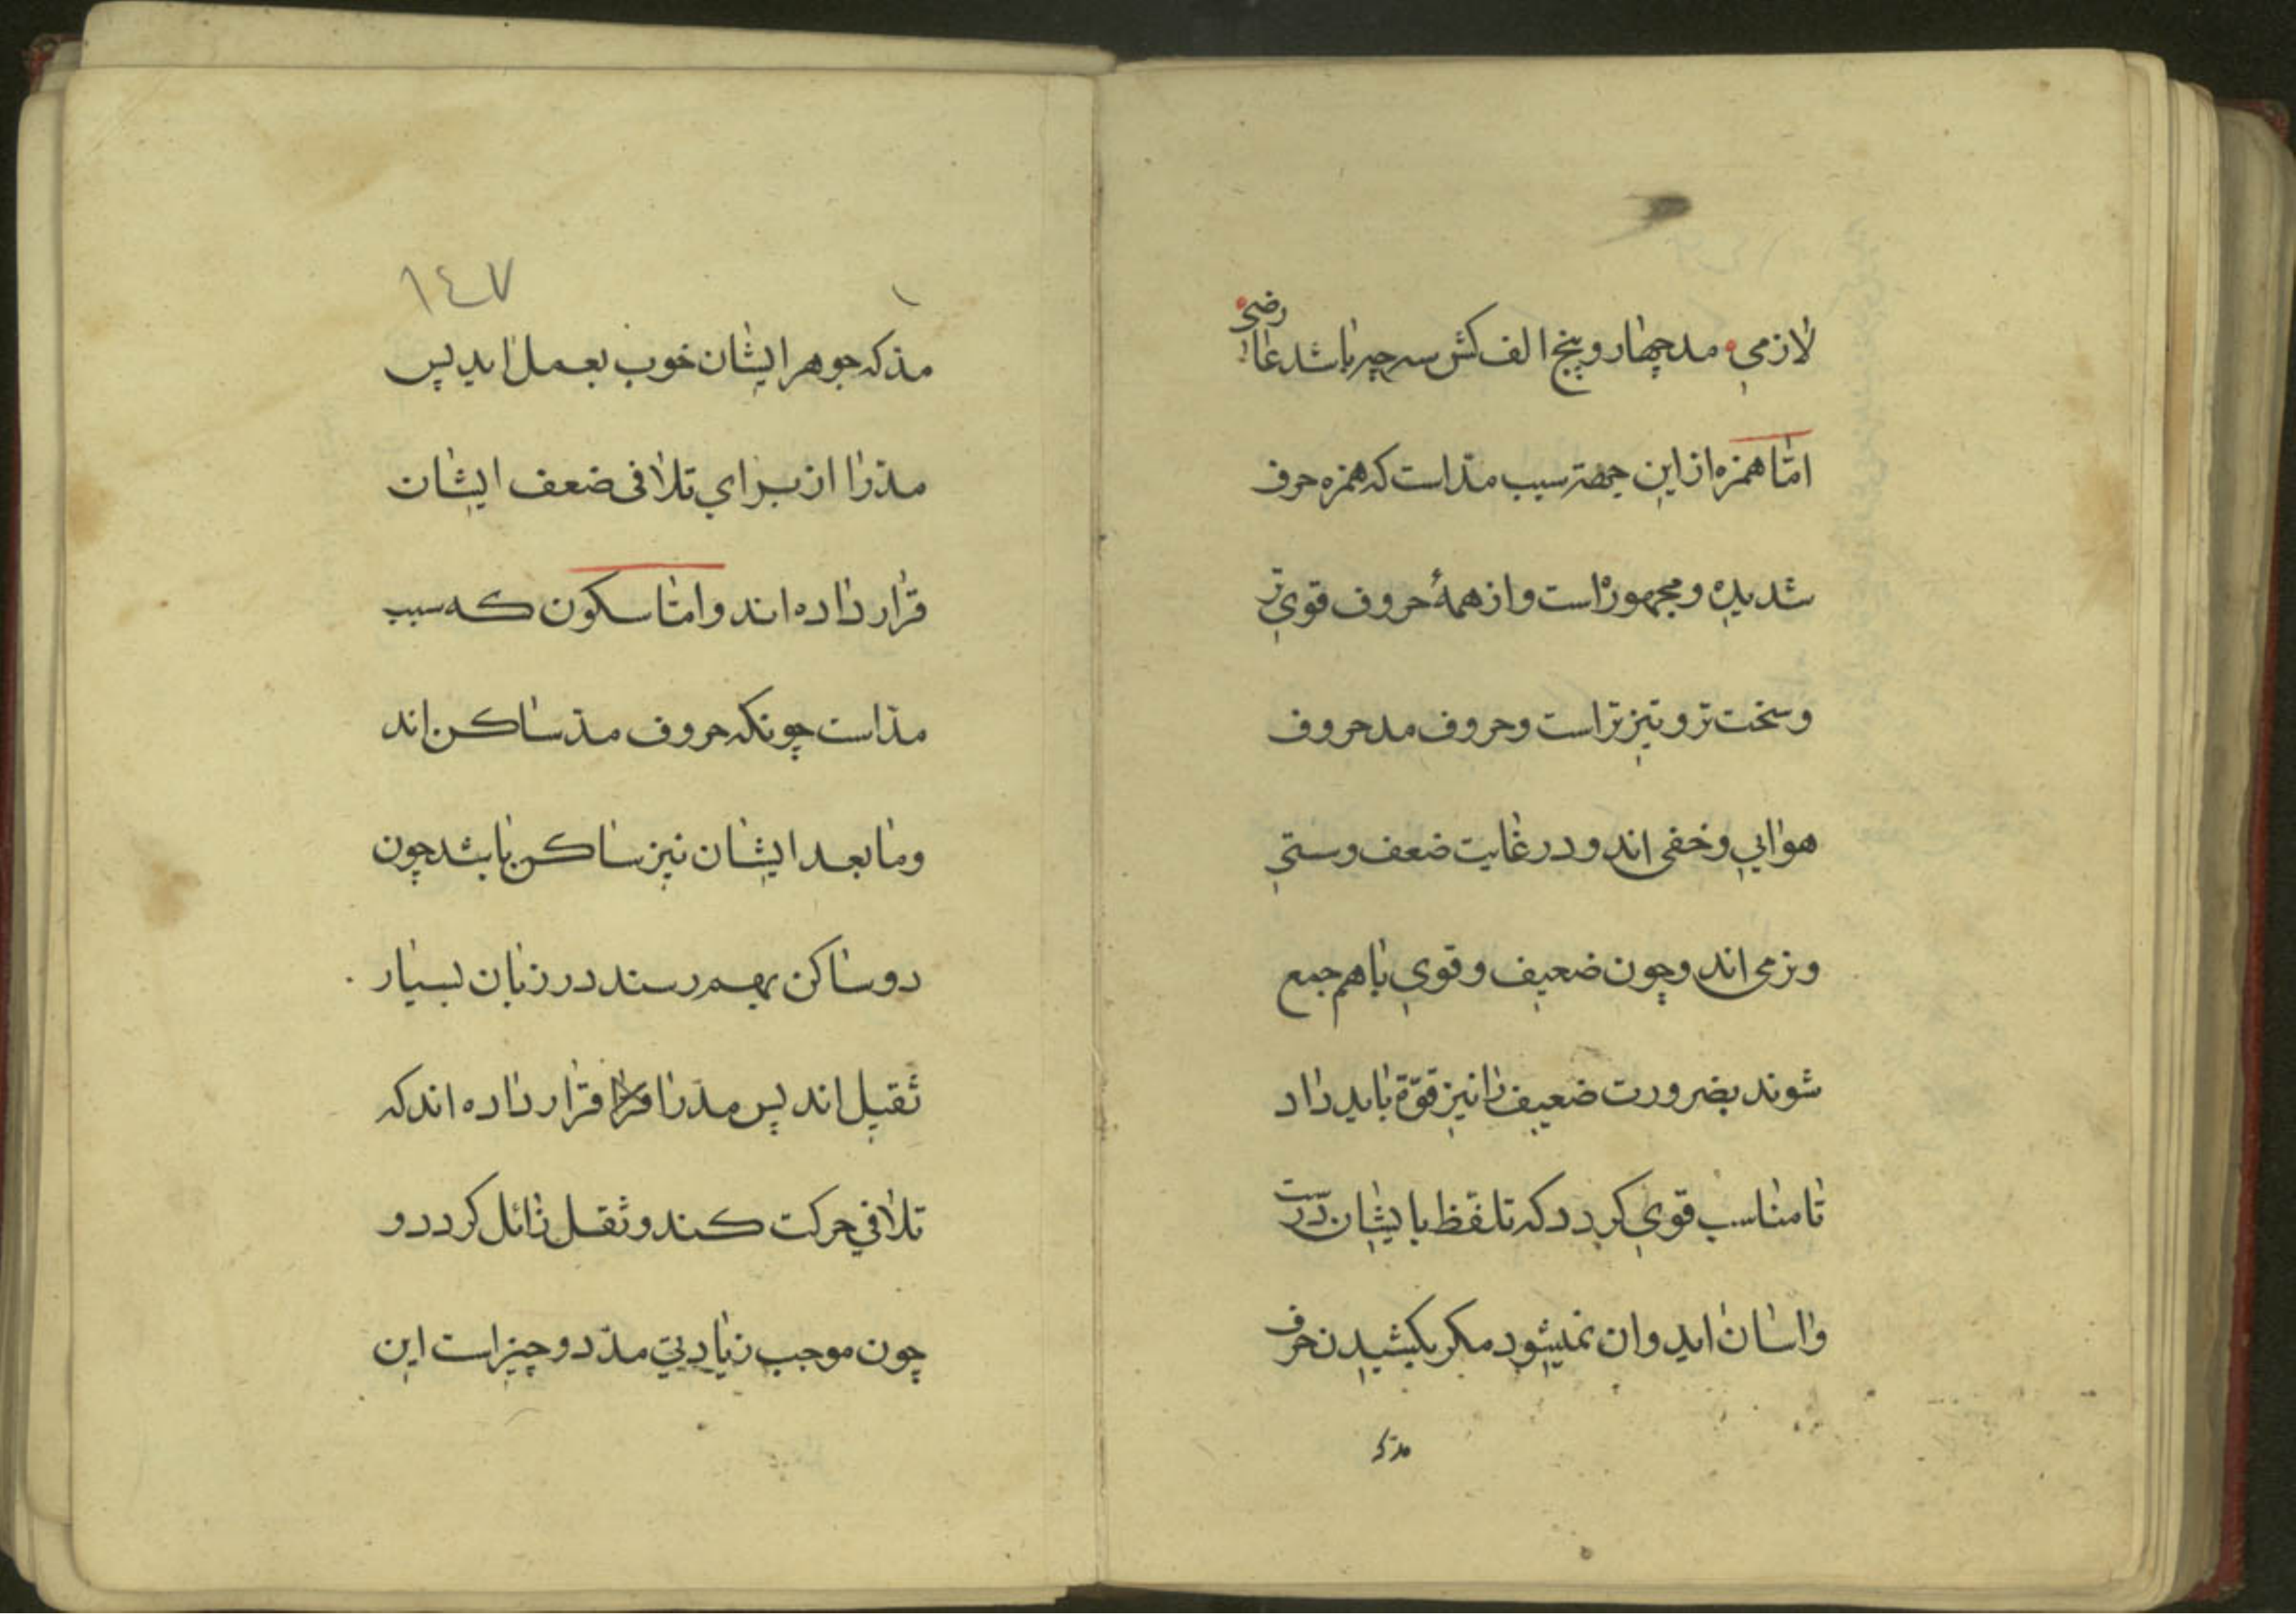 لازمي مد چهار و پنج الف كش سه چیر باشد عارضي
امّا همزه از این جهة سبب مدّ است که همزه حرف
شدیده و مجهوره است و از همهٔ حروف قوي تر
و سخت تر و تیز تر است و حروف مد حروف
هوایي و خفی اند و در غایت ضعف و سستي
و نرمی اند و چون ضعیف و قوي با هم جمع
شوند بضرورت ضعیف را نیز قوّة باید داد
تا مناسب قوي کردد که تلفّظ بایشان درست
و اسان اید و ان نمیشود مکر بکشیدن حرف
مدّ که
١٤٧
مدّ که جوهر ایشان خوب بعمل اید پس
مدّ را از براي تلافی ضعف ایشان
قرار داده اند و امّا سکون که سبب
مدّ است چونکه حروف مدّ ساکن اند
و ما بعد ایشان نیز ساکن باشد چون
دو ساکن بهم رسند در زبان بسیار
ثقیل اند پس مدّ را قرار داده اند که
تلافي حرکت کند و ثقل زائل کردد و
چون موجب زیادتي مدّ دو چیز است این